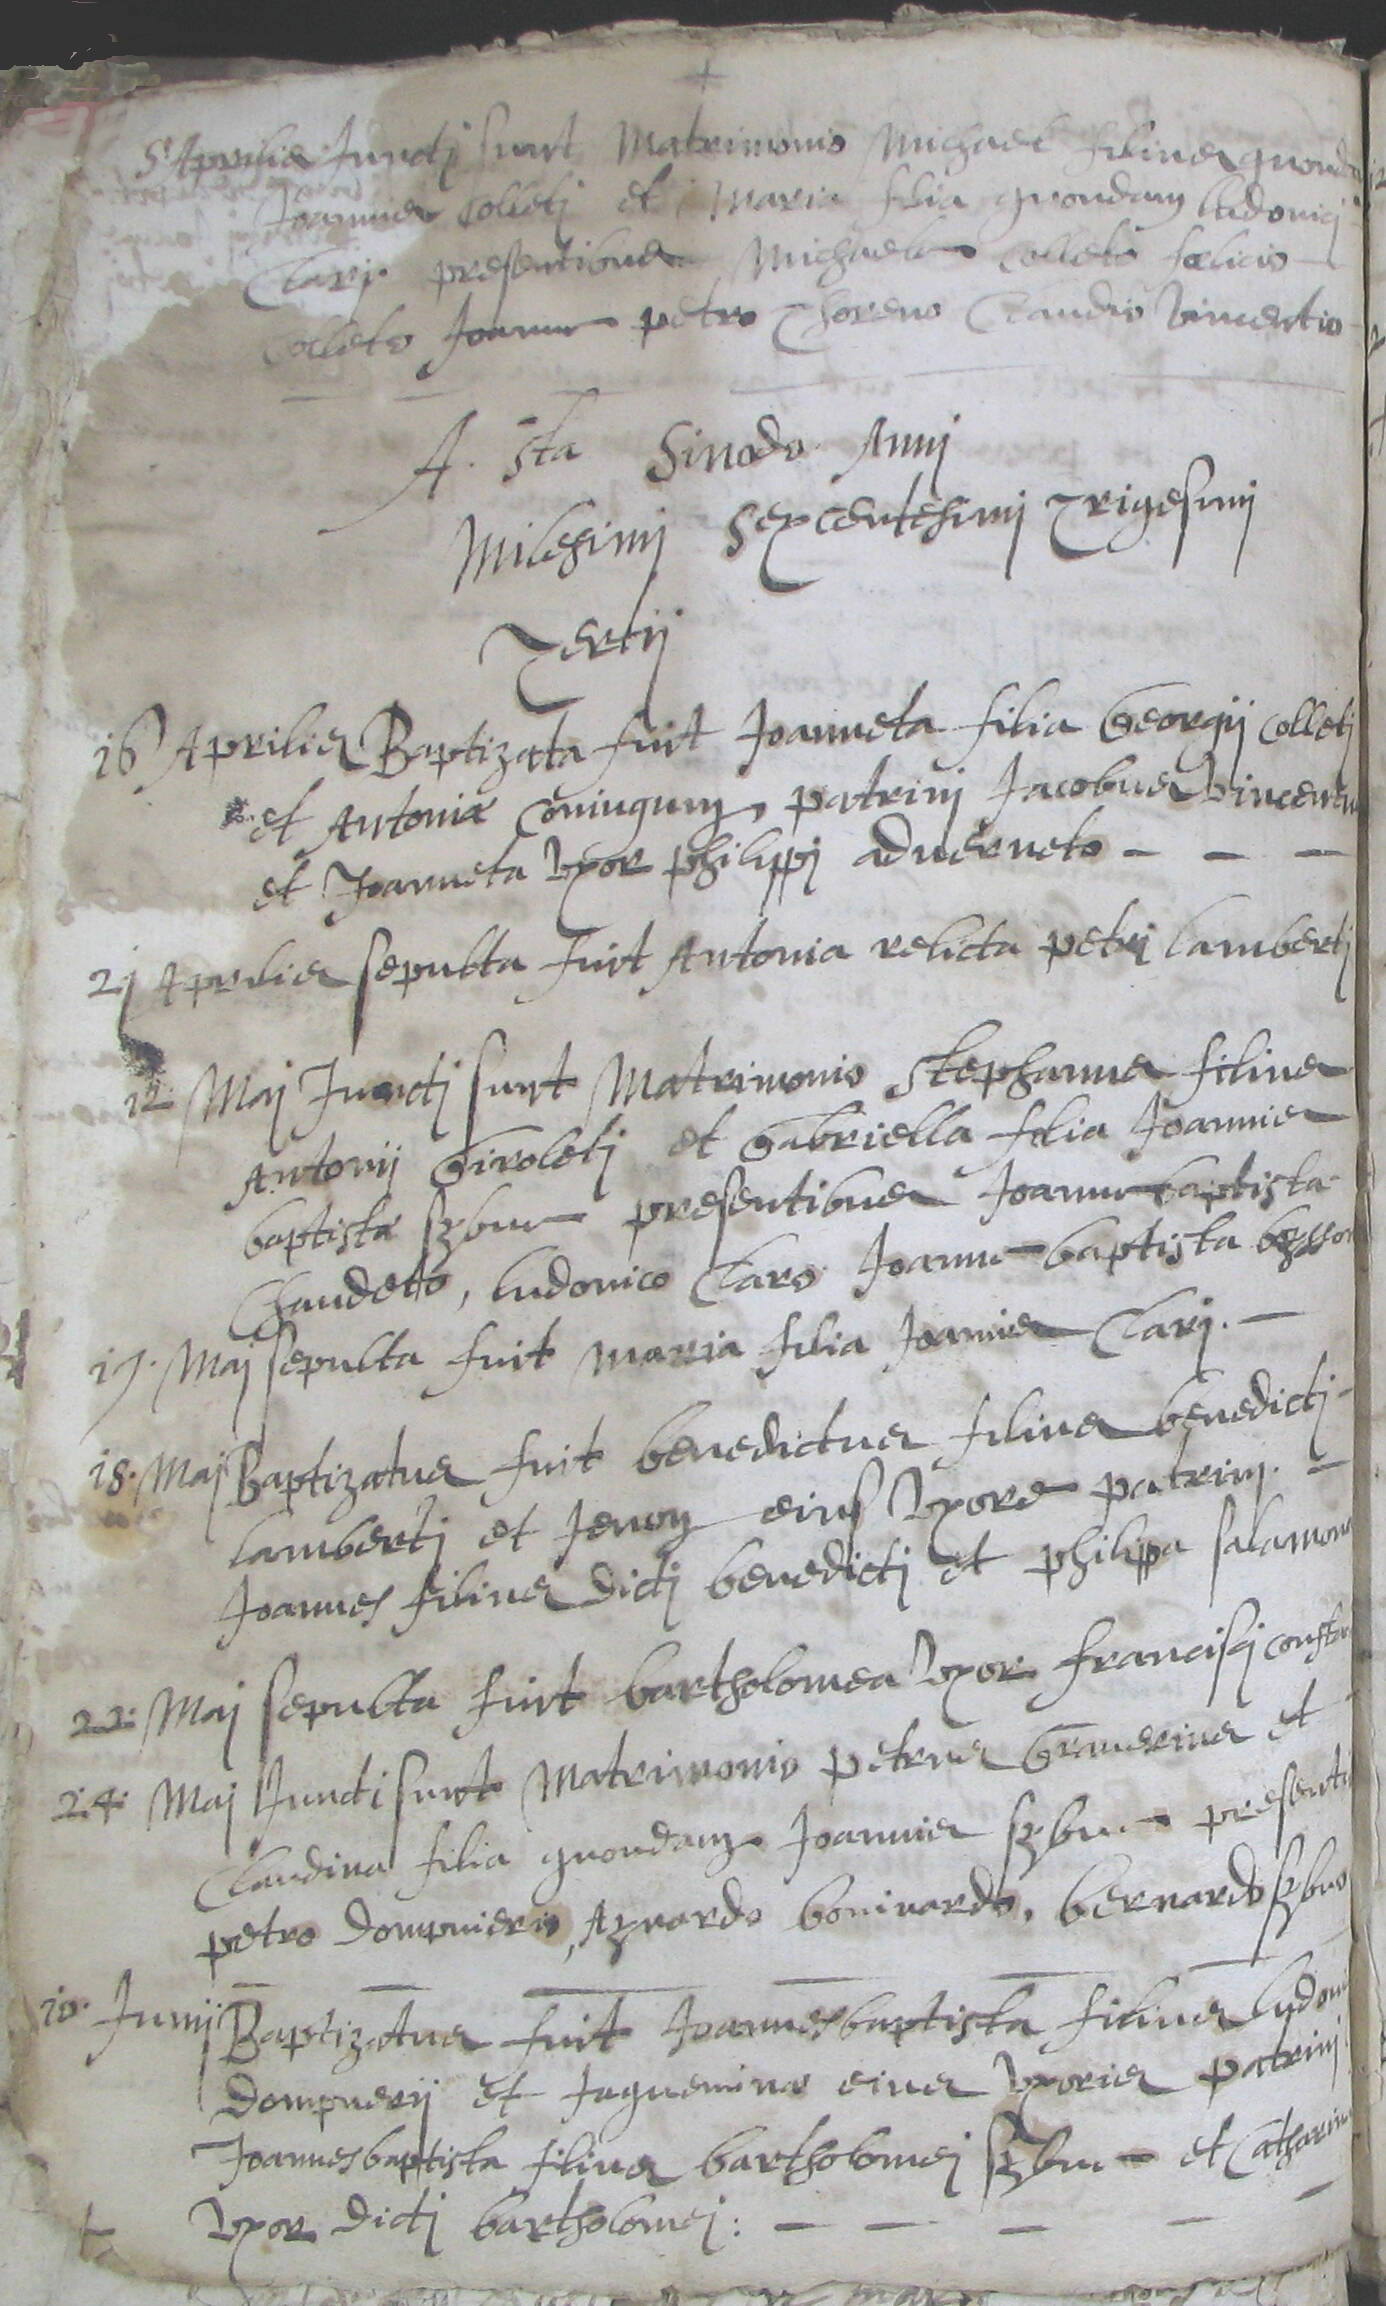 5 Aprilis Juncti sunt Matrimonio Michael filius quondam
Joannis Colletj et Maria filia quondam ludovicj
Clarj. presentibus Michaele Colleto fœlicio
Colleto Joanne petro Thoreno Claudio Vincentio
A. Sta Sinodo Annj
Milesimj Sexcentesimj Trigesimj
Tertij
16 Aprilis Baptizata fuit Joanneta filia Georgij Colletj
et Antoniæ Coniugum, patrinj Jacobus Vincentius
et Joanneta Vxor philippj adverneto - - -
21 Aprilis sepulta fuit Antonia relicta petrj lambertj
12 Maj Junctj sunt Matrimonio Stephanus filius
Antonij Giroletj et Gabriella filia Joannis
baptistæ presentibus Joanne baptista
Chaudeto, ludovico Claro Joanne baptista
17. Maj sepulta fuit maria filia Joannis Clarj. -
18. Maj Baptizatus fuit benedictus filius benedictj -
lambertj et Jenon eius Vxore patrinj. -
Joannes filius dictj benedictj et philippa salamone
22. Maj sepulta fuit bartholomea Vxor francisj
24. Maj Juncti sunt Matrimonio petrus Gramerius et
Claudina filia quondam Joannis
petro dompnierio, Aymardo bonivardo, bernardo
10. Junij Baptizatus fuit Joannesbaptista filius
dompnerij et Jaquemina eius Vxoris patrinj
Joannesbaptista filius bartholomej et Catharina
Vxor dictj bartholomej: - - - - -